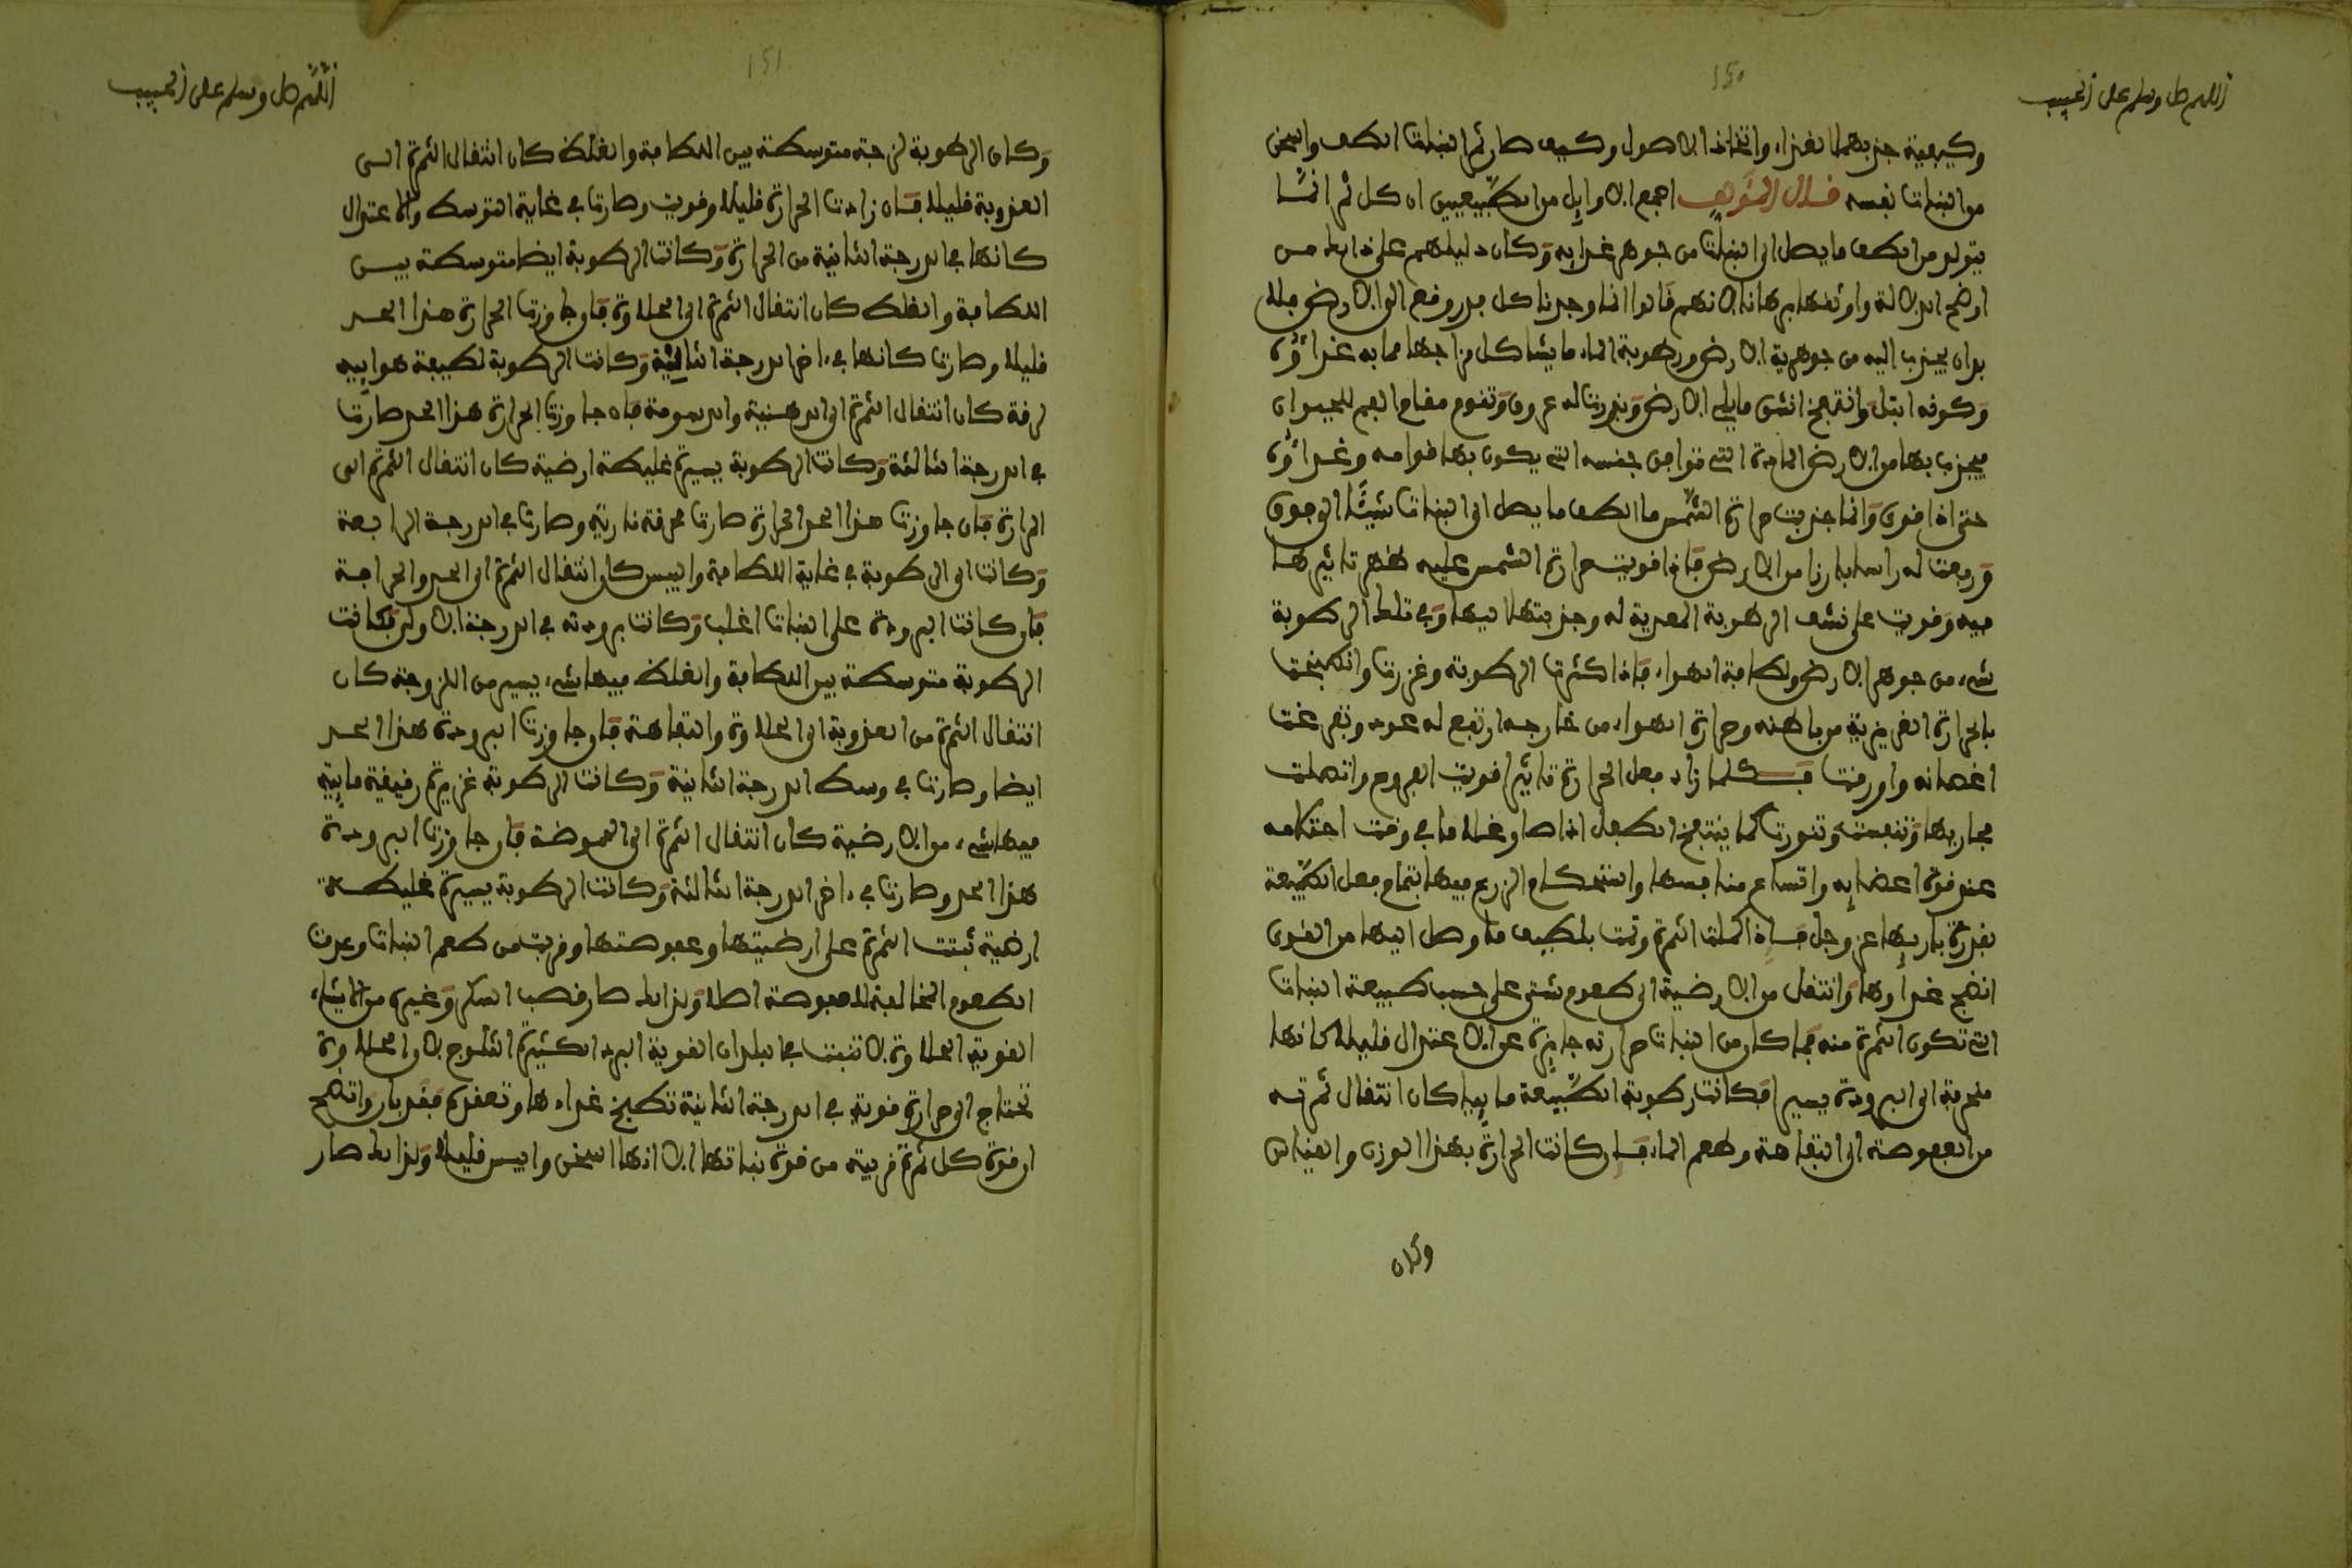 اللهم صل وسلم على الحبيب
150
وكيفية جذبهما الغذاء واتخاذ الاصول وكيف صار ثمر النبات الطف واسخن
من النبات نفسه قال المؤلف اجمع الاوايل من الطبيعيين ان كل ثمر انما
يتولد من الطف ما يصل الى النبات من جوهر غذايه وكان دليلهم على ذلك من
اوضح الدلالة واوثقها برهانا لانهم قالوا انا وجدنا كل بزر وقع الى الارض فلا
بد ان يجذب اليه من جوهرية الارض ورطوبة الماء ما يشاكل مزاجها مما به غذاؤه
وكونه ابتل وانتفخ انشق ما يلي الارض وبرزت له عروق وتقوم مقام الفم للحيوان
يجذب بها من الارض المادة التي توافق جنسه التي يكون بها قوامه وغذاؤه
حتى اذا قوى وانما جذبت حرارة الشمس ما الطف ما يصل الى النبات شيئا الى فوق
ورفعت له راسا بارزا من الارض فاذا قويت حرارة الشمس عليه ظهر تاثيرها
فيه وقويت على نشف الرطوبة المغذية له وجذبتها اليها وفي تلك الرطوبة
شيء من جوهر الارض ولطافة الهواء فاذا كثرت الرطوبة وغزرت وانطبخت
بالحرارة الغريزية من باطنه وحرارة الهواء من خارجه ارتفع له عود وتفرعت
اغصانه واورقت فكلما زاد فعل الحرارة تاثيرا قويت الفروع واتصلت
مجاريها وتفتحت وتنورت كما ينتفخ الطفل اذا صار غلاما في وقت احتلامه
عند قوة اعضايه واتساع منافسها واستحكام الزرع فيها بتمام فعل الطبيعة
بقدرة باريها عز وجل فاذا كملت الثمرة وتمت بلطيف ما وصل اليها من القوى
انضج غذاؤها وانتقل من الارضية الى طعوم شتى على حسب طبيعة النبات
التي تكون الثمرة منه فما كان من النبات حرارته جايزة عن الاعتدال قليلا كانها
منحرفة الى البرودة يسيرا وكانت رطوبة الطبيعة مايية كان انتقال ثمرته
من العفوصة الى التفاهة وطعم الماء فان كانت الحرارة بهذا الوزن والقياس
وكان
اللهم صل وسلم على الحبيب
151
وكان الرطوبة لزجة متوسطة بين اللطافة والغلظ كان انتقال الثمرة الى
العذوبة قليلا فان زادت الحرارة قليلا وقويت وصارت في غاية التوسط والاعتدال
كانها في الدرجة الثانية من الحرارة وكانت الرطوبة ايضا متوسطة بين
اللطافة والغلظ كان انتقال الثمرة الى الحلاوة فان جاوزت الحرارة هذا الحد
قليلا وصارت كانها في ءاخر الدرجة الثانية وكانت الرطوبة لطيفة هوايية
لزقة كان انتقال الثمرة الى الدهنية والدسومة فان جاوزت الحرارة هذا الحد صارت
في الدرجة الثالثة وكانت الرطوبة يسيرة غليظة ارضية كان انتقال الثمرة الى
المرارة فان جاوزت هذا الحد الحرارة صارت محرقة نارية وصارت في الدرجة الرابعة
وكانت الى الرطوبة في غاية اللطافة واليبس كان انتقال الثمرة الى الحد والحرافة
فان كانت البرودة على النبات اغلب وكانت برودته في الدرجة الاولى وكانت
الرطوبة متوسطة بين اللطافة والغلظ فيها شيء يسير من اللزوجة كان
انتقال الثمرة من العذوبة الى الحلاوة والتفاهة فان جاوزت البرودة هذا الحد
ايضا وصارت في وسط الدرجة الثانية وكانت الرطوبة غزيرة رقيقة مايية
فيها شيء من الارضية كان انتقال الثمرة الى الحموضة فان جاوزت البرودة
هذا الحد وصارت في ءاخر الدرجة الثالثة وكانت الرطوبة يسيرة غليظة
ارضية ثبتت الثمرة على ارضيتها وعفوصتها وقربت من طعم النبات وعرفت
الطعوم المخالفة للعفوصة اصلا ولذلك صار قصب السكر وغيره من الاشياء
القوية الحلاوة لا تنبت في البلدان القوية البرد الكثيرة الثلوج لان الحلاوة
تحتاج الى حرارة قوية في الدرجة الثانية تطبخ غذاءها وتعقده فقد بان واتضح
ان قوة كل ثمرة قريبة من قوة نباتها الا انها اسخن وايبس قليلا ولذلك صار